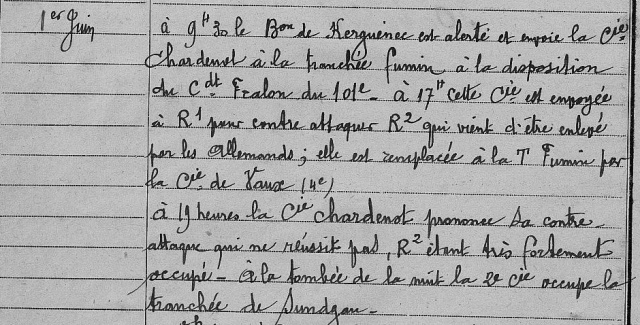 1er Juin
à 9H30 le Bon de Kerguénec est alerté et envoie la Cie
Chardenot à la tranchée fumin à la disposition
du Cdt Fralon du 101e - à 17H cette Cie est envoyée
à R1 pour contre attaquer R2 qui vient d'être enlevé
par les Allemands ; elle est remplacée à la T Fumin par
la Cie de Vaux (4e)
à 19 heures la Cie Chardenot prononce sa contre-
attaque qui ne réussit pas, R2 étant très fortement
occupé - à la tombée de la nuit la 2e Cie occupe la
tranchée de Sundgau -